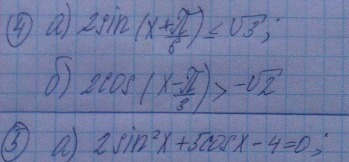 ④ а) 2sin(x+π/6) ≤ √3;
б) 2cos(x-π/3) > -√2
⑤ а) 2sin²x+5cosx-4=0;